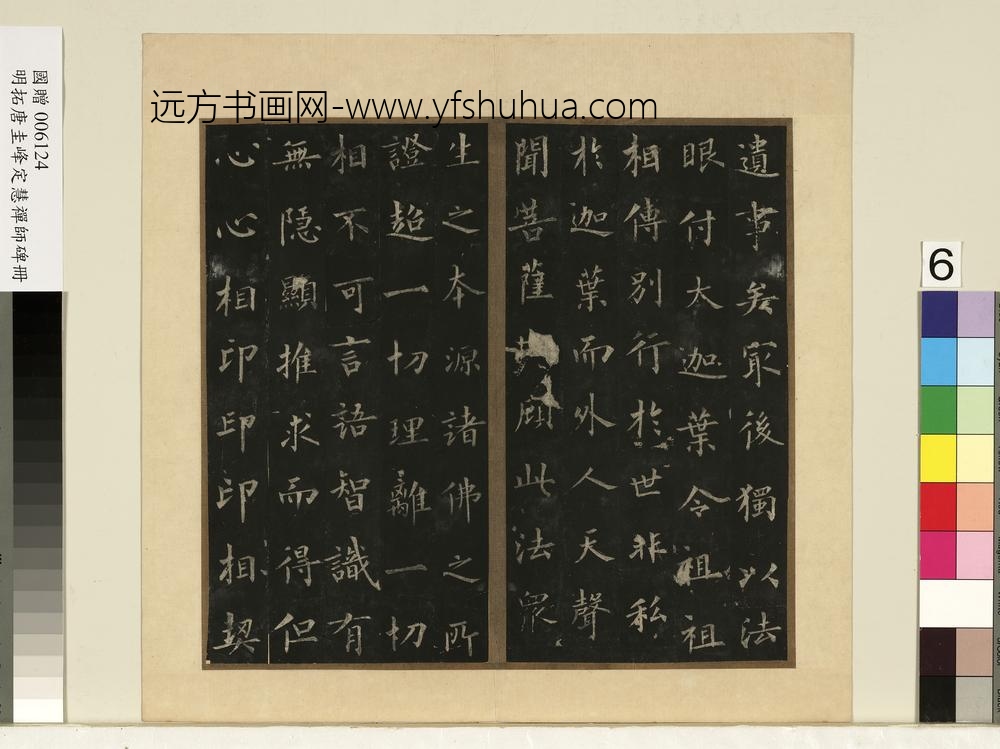 远方书画网-www.yfshuhua.com
國贈 006124
明拓唐圭峰定慧禪師碑冊
6
遺事矣冣後獨以法
眼付大迦葉令祖祖
相傳別行於世非私
於迦葉而外人天聲
聞菩薩顧此法眾
生之本源諸佛之所
證超一切理離一切
相不可言語智識有
無隱顯推求而得但
心心相印印印相契